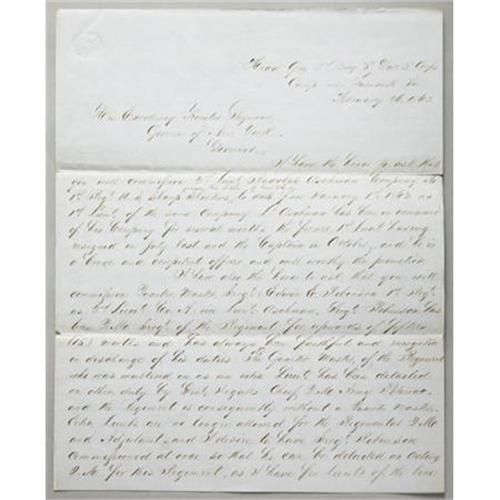 Head Qrs 1st Brig 3d Div 3d Corps
Camp near Falmouth Va
February 26. 1863
His Excellency Horatio Seymour
Governor of New York
General.
I have the honor to ask that
you will commission 2nd Lieut. Company
from the State of New York
1st Reg't U.S. Sharp Shooters, to date from January 1st 1863 as
1st Lieut. of the same Company. Lt. has been in command
of his Company for several months the former 1st Lieut having
resigned in July last and the Captain in October, and he is
a brave and competent officer and well worthy the promotion.
I have also the honor to ask that you will
commission Quarter Master Serg't Edwin E. Robinson 1st Reg't
as 2nd Lieut. Co. vice Lieut. Serg't Robinson has
been Q.M. Serg't of the Regiment for upwards of fifteen
(15) months and has always been faithful and energetic
in discharge of his duties. The Quarter Master of the Regiment
who was mustered in as an extra Lieut has been detached
on other duty by Gen'l Ingalls Chief Q.M. Army Potomac,
and the Regiment is consequently without a Quarter Master.
Extra Lieuts are no longer allowed for the Regimental Q.M.
and Adjutant, and I desire to have Serg't Robinson
commissioned at once so that he can be detailed as acting
Q.M. for this Regiment, as I have few Lieuts of the line